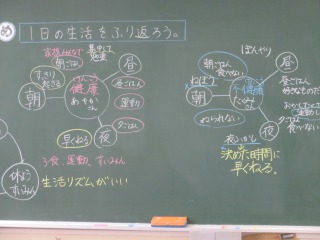 め
1日の生活をふり返ろう。
集中して
朝ごはん
昼
昼ごはん
すっきり
起きる
健康
朝
あやかさん
運動
夕ごはん
夜
早くねる
3食、運動、すいみん
生活リズムがいい
休よう
すいみん
ぼんやり
朝ごはん
食べない
昼
昼ごはん
好きなものだけ
ねぼう
朝
不健康
ねられない
夜
夕ごはん
食べない
夜ふかし
決めた時間に
早くねる。